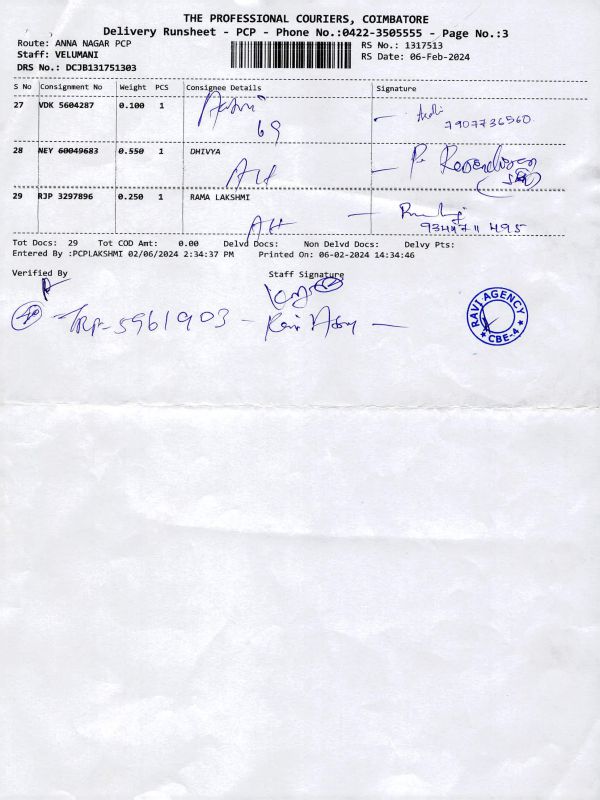 THE PROFESSIONAL COURIERS, COIMBATORE
Delivery Runsheet - PCP - Phone No.:0422-3505555 - Page No.:3
Route: ANNA NAGAR PCP
RS No.: 1317513
Staff: VELUMANI
RS Date: 06-Feb-2024
DRS No.: DCJB131751303
S No Consignment No Weight PCS Consignee Details Signature
27 VDK 5604287 0.100 1
69
7907736560
28 NEY 60049683 0.550 1 DHIVYA
29 RJP 3297896 0.250 1 RAMA LAKSHMI
Tot Docs: 29 Tot COD Amt: 0.00 Delvd Docs: Non Delvd Docs: Delvy Pts:
Entered By :PCPLAKSHMI 02/06/2024 2:34:37 PM Printed On: 06-02-2024 14:34:46
Verified By Staff Signature
5961903
RAVI AGENCY
CBE-4